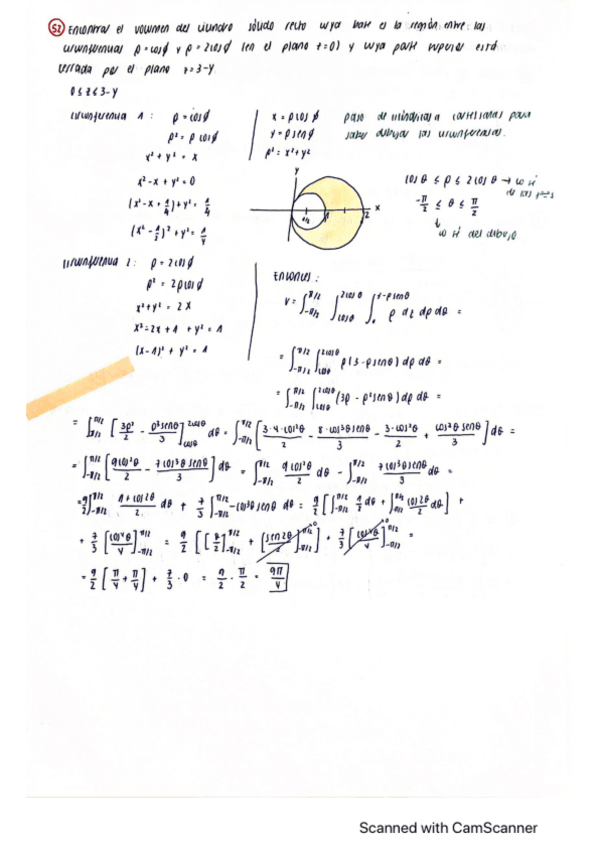 52 Encontrar el volumen del cilindro sólido recto cuya base es la región entre las
circunferencias ρ = cosϕ y ρ = 2cosϕ (en el plano z=0) y cuya parte superior está
cerrada por el plano z=3-y.
0≤z≤3-y
circunferencia 1: ρ = cosϕ
ρ² = ρ cosϕ
x² + y² = x
x² - x + y² = 0
(x² - x + 1/4) + y² = 1/4
(x² - 1/2)² + y² = 1/4
x = ρ cos ϕ
y = ρ sen ϕ
ρ² = x² + y²
paso de cilíndricas a cartesianas para
saber dibujar las circunferencias.
y
x
1/2 1 2
cos θ ≤ ρ ≤ 2 cos θ → lo sé
-π/2 ≤ θ ≤ π/2
↓
lo sé del dibujo
circunferencia 2: ρ = 2cosϕ
ρ² = 2ρcosϕ
x² + y² = 2x
x² - 2x + 1 + y² = 1
(x-1)² + y² = 1
ENTONCES:
V = ∫_{-π/2}^{π/2} ∫_{cosθ}^{2cosθ} ∫_0^{3-ρsenθ} ρ dz dρ dθ =
= ∫_{-π/2}^{π/2} ∫_{cosθ}^{2cosθ} ρ(3-ρsenθ) dρ dθ =
= ∫_{-π/2}^{π/2} ∫_{cosθ}^{2cosθ} (3ρ - ρ²senθ) dρ dθ =
= ∫_{-π/2}^{π/2} [3ρ²/2 - ρ³senθ/3]_{cosθ}^{2cosθ} dθ = ∫_{-π/2}^{π/2} [3·4·cos²θ/2 - 8·cos³θsenθ/3 - 3·cos²θ/2 + cos³θ senθ/3] dθ =
= ∫_{-π/2}^{π/2} [9cos²θ/2 - 7cos³θ senθ/3] dθ = ∫_{-π/2}^{π/2} 9cos²θ/2 dθ - ∫_{-π/2}^{π/2} 7cos³θsenθ/3 dθ =
= 9/2 ∫_{-π/2}^{π/2} 1+cos2θ/2 dθ + 7/3 ∫_{-π/2}^{π/2} -cos³θ senθ dθ = 9/2 [∫_{-π/2}^{π/2} 1/2 dθ + ∫_{-π/2}^{π/2} cos2θ/2 dθ] +
+ 7/3 [cos⁴θ/4]_{-π/2}^{π/2} = 9/2 [[θ/2]_{-π/2}^{π/2} + [sen2θ/4]_{-π/2}^{π/2} 0] + 7/3 [cos⁴θ/4]_{-π/2}^{π/2} 0 =
= 9/2 [π/4 + π/4] + 7/3 · 0 = 9/2 · π/2 = 9π/4
Scanned with CamScanner